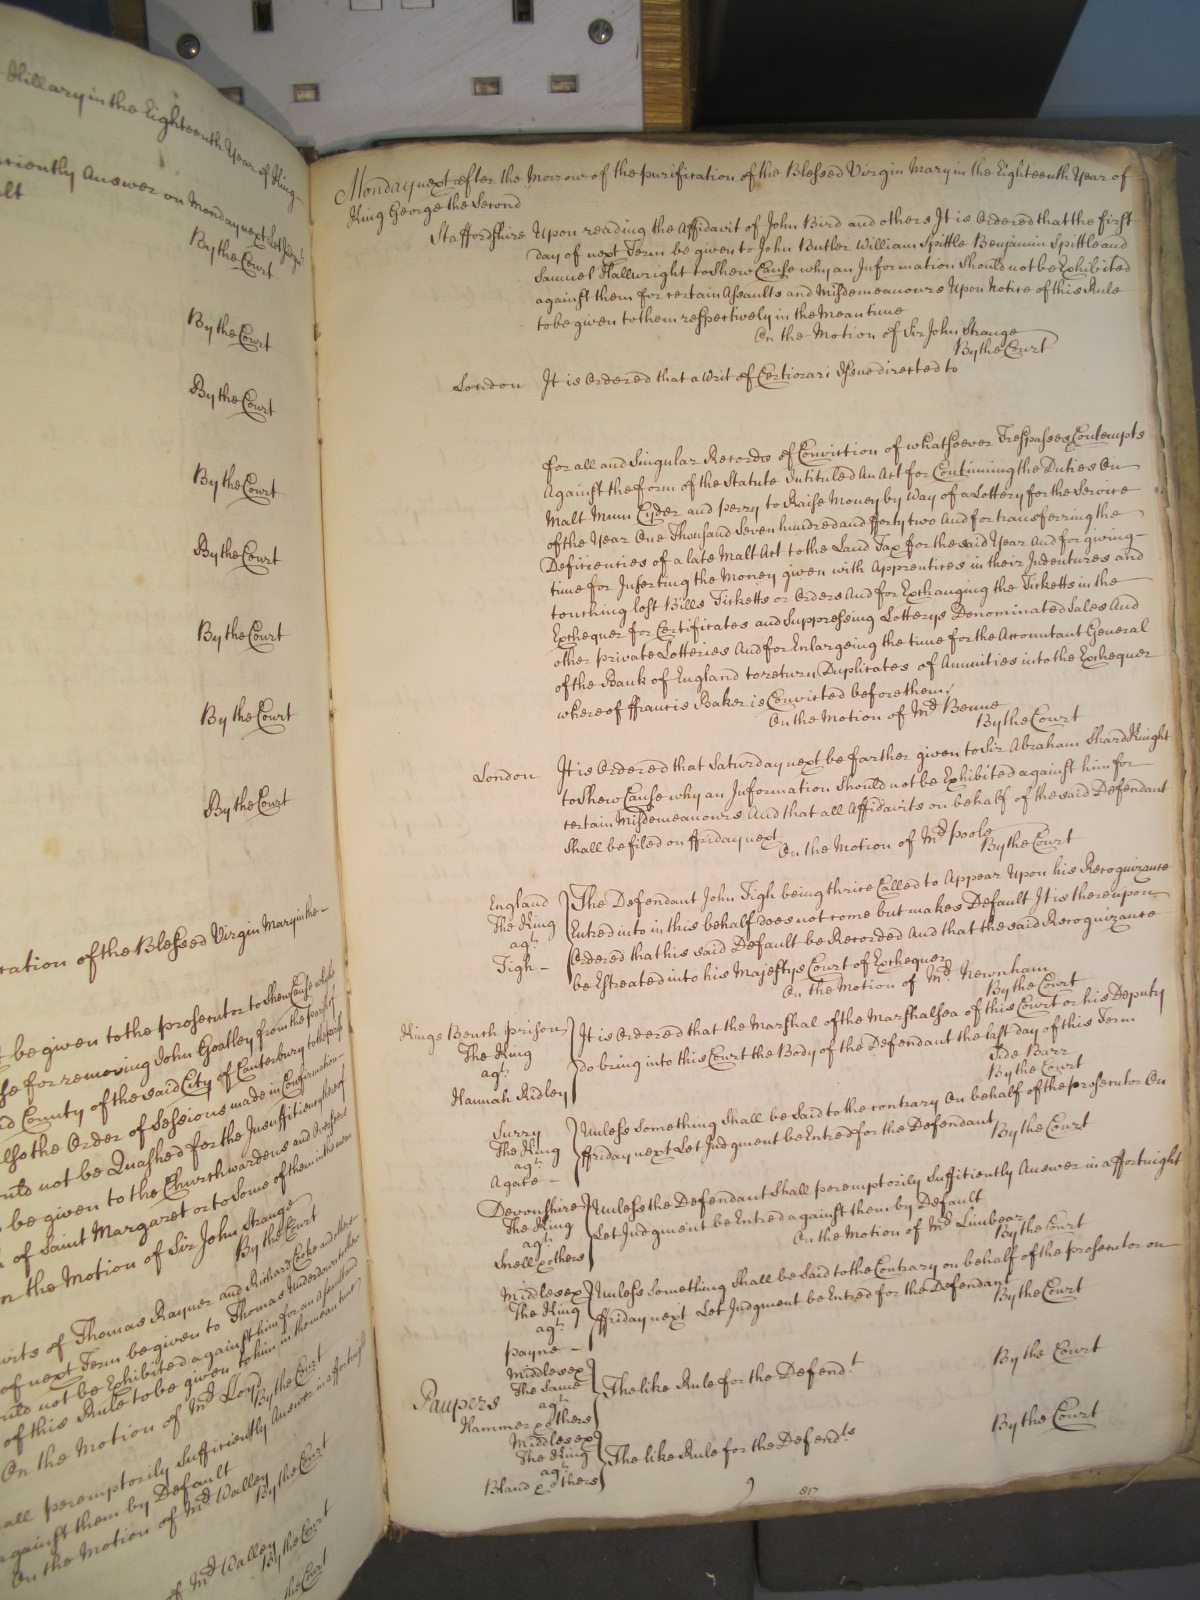 Hillary in the Eighteenth Year of King
Answer on Monday next Let Judgmt
By the Court
By the Court
By the Court
By the Court
By the Court
By the Court
By the Court
By the Court
of the Blessed Virgin Mary in the
be given to the prosecutor to shew Cause why
for removing John Goatley from the parish of
County of the said City of Canterbury to the parish
also the Order of Sessions made in Confirmation
not be Quashed for the Insufficiency thereof
be given to the Churchwardens and Overseers
of Saint Margaret or to Some of them in the mean
On the Motion of Sir John Strange
By the Court
of Thomas Rayner and Richard Cocke and others
of next Term be given to Thomas Underdown
not be Exhibited against him for an Assault and
of this Rule to be given to him in the mean time
On the Motion of Mr Lloyd
By the Court
peremptorily Sufficiently Answer in a fortnight
against them by Default
On the Motion of Mr Walley
By the Court
of Mr Walley
By the Court
the Court
Monday next after the Morrow of the purification of the Blessed Virgin Mary in the Eighteenth Year of
King George the Second
Staffordshire Upon reading the Affidavit of John Bird and others It is Ordered that the first
day of next Term be given to John Butler William Spittle Benjamin Spittle and
Samuel Hallwright to Shew Cause why an Information Should not be Exhibited
against them for certain Assaults and Misdemeanours Upon Notice of this Rule
to be given to them respectively in the Mean time
On the Motion of Sir John Strange
By the Court
London It is Ordered that a Writ of Certiorari Issue directed to
for all and Singular Records of Conviction of whatsoever Trespasses Contempts
Against the form of the Statute Intituled An Act for Continuing the Duties On
Malt Mum Cyder and perry to Raise Money by Way of a Lottery for the Service
of the Year One Thousand Seven hundred and fforty two And for transferring the
Deficiencies of a late Malt Act to the Land Tax for the said Year And for giving
time for Inserting the Money given with Apprentices in their Indentures and
touching lost Bills Ticketts or Orders And for Exchanging the Ticketts in the
Exchequer for Certificates and Suppressing Lotterys Denominated Sales And
other private Lotteries And for Enlargeing the time for the Accountant General
of the Bank of England to return Duplicates of Annuities into the Exchequer
whereof ffrancis Baker is Convicted before them
On the Motion of Mr Benne
By the Court
London It is Ordered that Saturday next be farther given to Sir Abraham Shard Knight
to Shew Cause why an Information Should not be Exhibited against him for
certain Misdemeanours And that all Affidavits on behalf of the said Defendant
Shall be filed on ffriday next
On the Motion of Mr Poole
By the Court
England The Defendant John Tigh being thrice Called to Appear Upon his Recognizance
The King Entred into in this behalf does not come but makes Default It is thereupon
agt Ordered that his said Default be Recorded And that the said Recognizance
Tigh be Estreated into his Majestys Court of Exchequer
On the Motion of Mr Newnham
By the Court
Kings Bench prison It is Ordered that the Marshal of the Marshalsea of this Court or his Deputy
The King do bring into this Court the Body of the Defendant the last day of this Term
agt Side Barr
Hannah Ridley By the Court
Surry Unless Something Shall be Said to the contrary On behalf of the prosecutor On
The King ffriday next Let Judgment be Entred for the Defendant
agt By the Court
Agate
Devonshire Unless the Defendant Shall peremptorily Sufficiently Answer in a ffortnight
The King Let Judgment be Entred against them by Default
agt On the Motion of Mr Limbear
Snell & others By the Court
Middlesex Unless Something Shall be Said to the Contrary on behalf of the prosecutor on
The King ffriday next Let Judgment be Entred for the Defendant
agt By the Court
payne
Middlesex
The Same The like Rule for the Defendt By the Court
Paupers agt
Hammer & others
Middlesex
The King The like Rule for the Defendts By the Court
agt
Bland & others
817